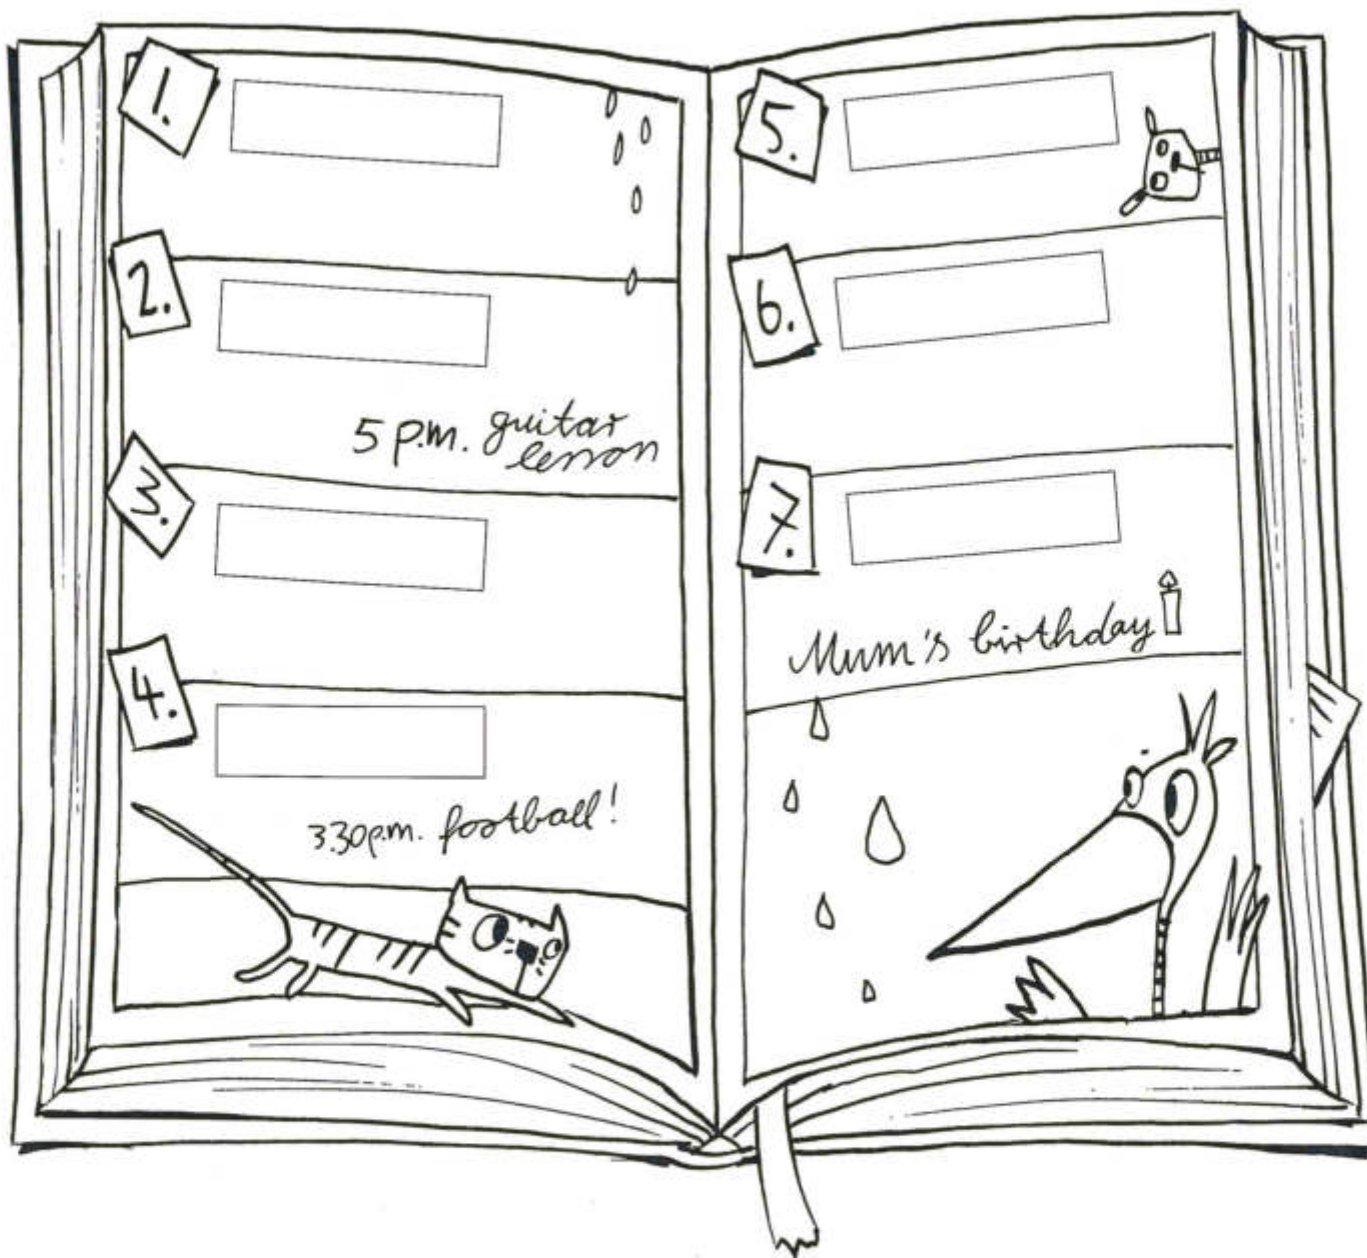 1.
2.
5 p.m. guitar
lesson
3.
4.
3.30 p.m. football!
5.
6.
7.
Mum's birthday